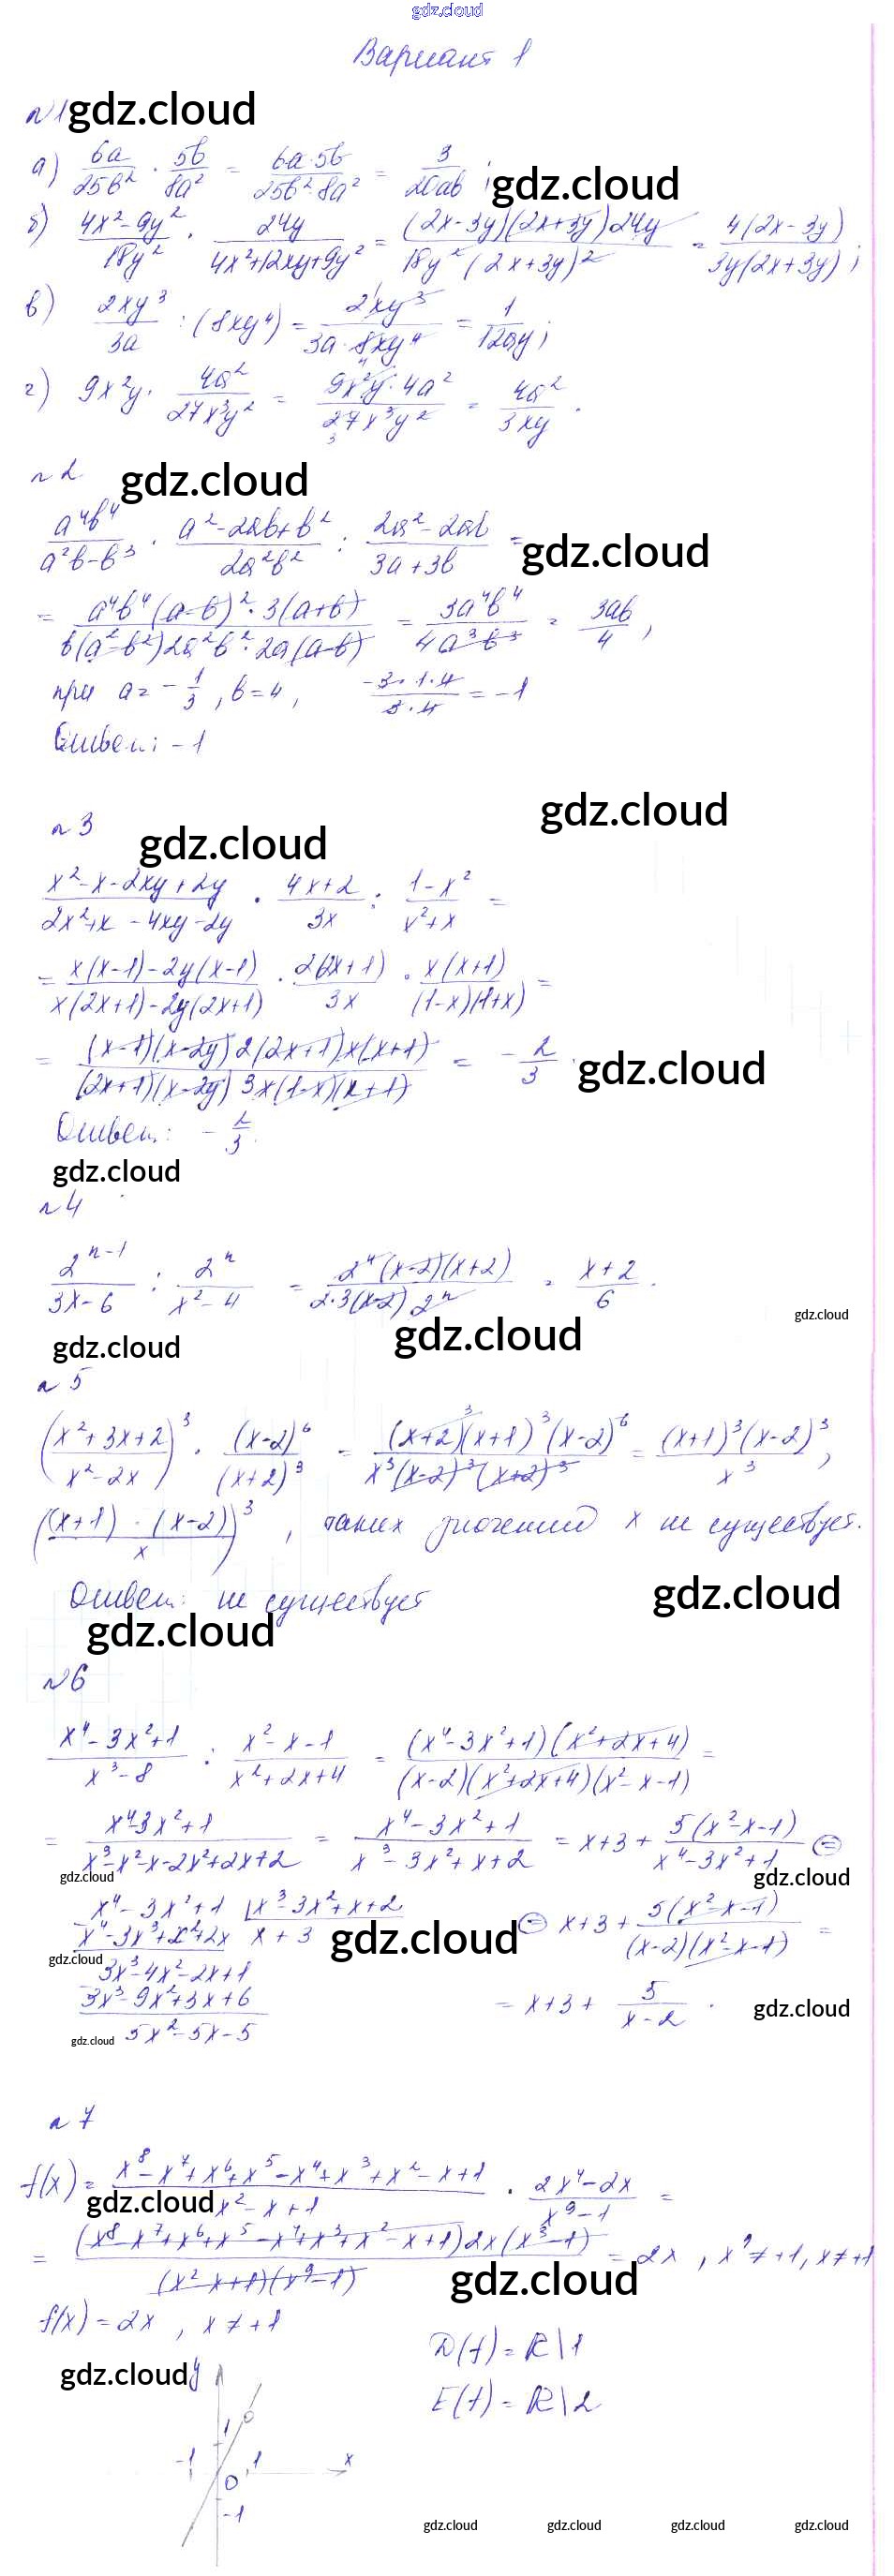 gdz.cloud
Вариант 1
№1 gdz.cloud
а) 6a/25b² · 5b/8a² = 6a·5b/25b²·8a² = 3/20ab ; gdz.cloud
б) 4x²-9y²/18y² · 24y/4x²+12xy+9y² = (2x-3y)(2x+3y)24y/18y²(2x+3y)² = 4(2x-3y)/3y(2x+3y) ;
в) 2xy³/3a : (8xy⁴) = 2xy³/3a·8xy⁴ = 1/12ay ;
г) 9x²y · 4a²/27x³y² = 9x²y·4a²/27x³y² = 4a²/3xy .
№2 gdz.cloud
a⁴b⁴/a²b-b³ · a²-2ab+b²/2a²b² : 2a²-2ab/3a+3b = gdz.cloud
= a⁴b⁴(a-b)²·3(a+b)/b(a²-b²)2a²b²·2a(a-b) = 3a⁴b⁴/4a³b³ = 3ab/4 ,
при a = -1/3 , b=4 , -3·1·4/3·4 = -1
Ответ: -1
gdz.cloud
№3 gdz.cloud
x²-x-2xy+2y/2x²+x-4xy-2y · 4x+2/3x : 1-x²/x²+x =
= x(x-1)-2y(x-1)/x(2x+1)-2y(2x+1) · 2(2x+1)/3x · x(x+1)/(1-x)(1+x) =
= (x-1)(x-2y)2(2x+1)x(x+1)/(2x+1)(x-2y)3x(1-x)(x+1) = -2/3 . gdz.cloud
Ответ: -2/3.
gdz.cloud
№4
2ⁿ⁻¹/3x-6 : 2ⁿ/x²-4 = 2ⁿ(x-2)(x+2)/2·3(x-2)2ⁿ = x+2/6 .
gdz.cloud
gdz.cloud gdz.cloud
№5
(x²+3x+2/x²-2x)³ · (x-2)⁶/(x+2)³ = (x+2)³(x+1)³(x-2)⁶/x³(x-2)³(x+2)³ = (x+1)³(x-2)³/x³ ,
((x+1)·(x-2)/x)³ , таких значений x не существует.
Ответ: не существует gdz.cloud
gdz.cloud
№6
x⁴-3x²+1/x³-8 : x²-x-1/x²+2x+4 = (x⁴-3x²+1)(x²+2x+4)/(x-2)(x²+2x+4)(x²-x-1) =
= x⁴-3x²+1/x³-x²-x-2x²+2x+2 = x⁴-3x²+1/x³-3x²+x+2 = x+3+ 5(x²-x-1)/x⁴-3x²+1 =
gdz.cloud gdz.cloud
x⁴-3x²+1 | x³-3x²+x+2
x⁴-3x³+x²+2x x+3 gdz.cloud = x+3+ 5(x²-x-1)/(x-2)(x²-x-1) =
gdz.cloud
3x³-4x²-2x+1
3x³-9x²+3x+6 = x+3+ 5/x-2 . gdz.cloud
gdz.cloud 5x²-5x-5
№7
f(x) = x⁸-x⁷+x⁶+x⁵-x⁴+x³+x²-x+1/x²-x+1 · 2x⁴-2x/x⁹-1 =
gdz.cloud
= (x⁸-x⁷+x⁶+x⁵-x⁴+x³+x²-x+1)2x(x³-1)/(x²-x+1)(x⁹-1) = 2x , x⁹≠+1, x≠+1
gdz.cloud
f(x) = 2x , x≠+1
D(f) = R\1
gdz.cloud y
E(f) = R\2
1
-1 1 x
0
-1
gdz.cloud gdz.cloud gdz.cloud gdz.cloud